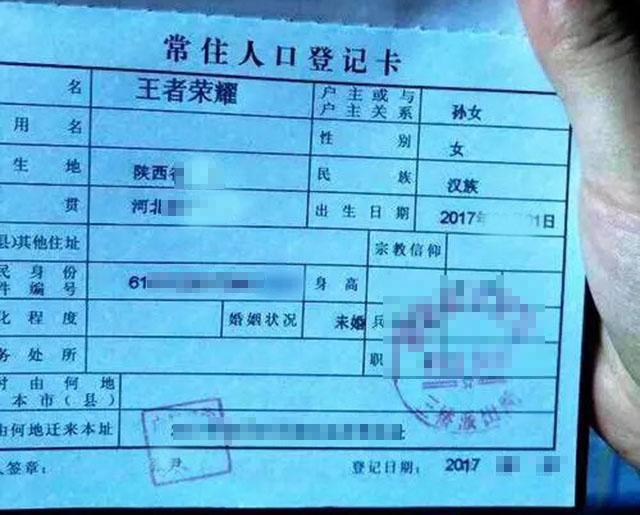 常住人口登记卡
名 王者荣耀 户主或与户主关系 孙女
用名 性别 女
生地 陕西 民族 汉族
贯 河北 出生日期 2017年 01日
县)其他住址 宗教信仰
民身份件编号 61 身高
化程度 婚姻状况 未婚 兵
务处所 职
时由何地
本市(县)
何地迁来本址
人签章: 登记日期: 2017